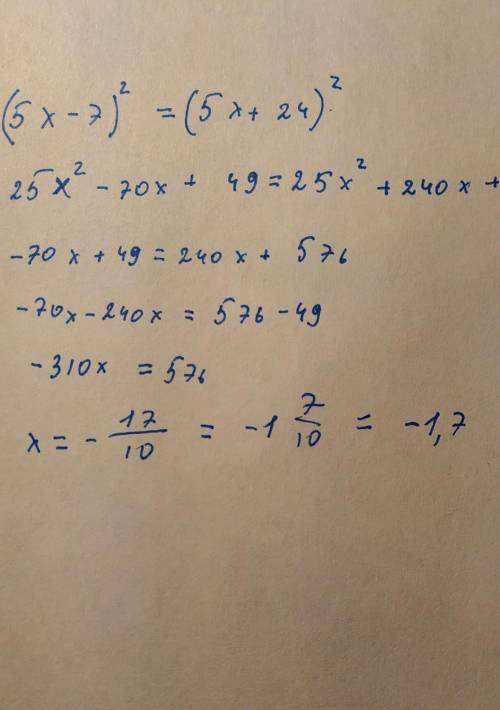 (5x-7)² = (5x+24)²
25x² - 70x + 49 = 25x² + 240x +
-70x + 49 = 240x + 576
-70x - 240x = 576 - 49
-310x = 576
x = - 17/10 = -1 7/10 = -1,7